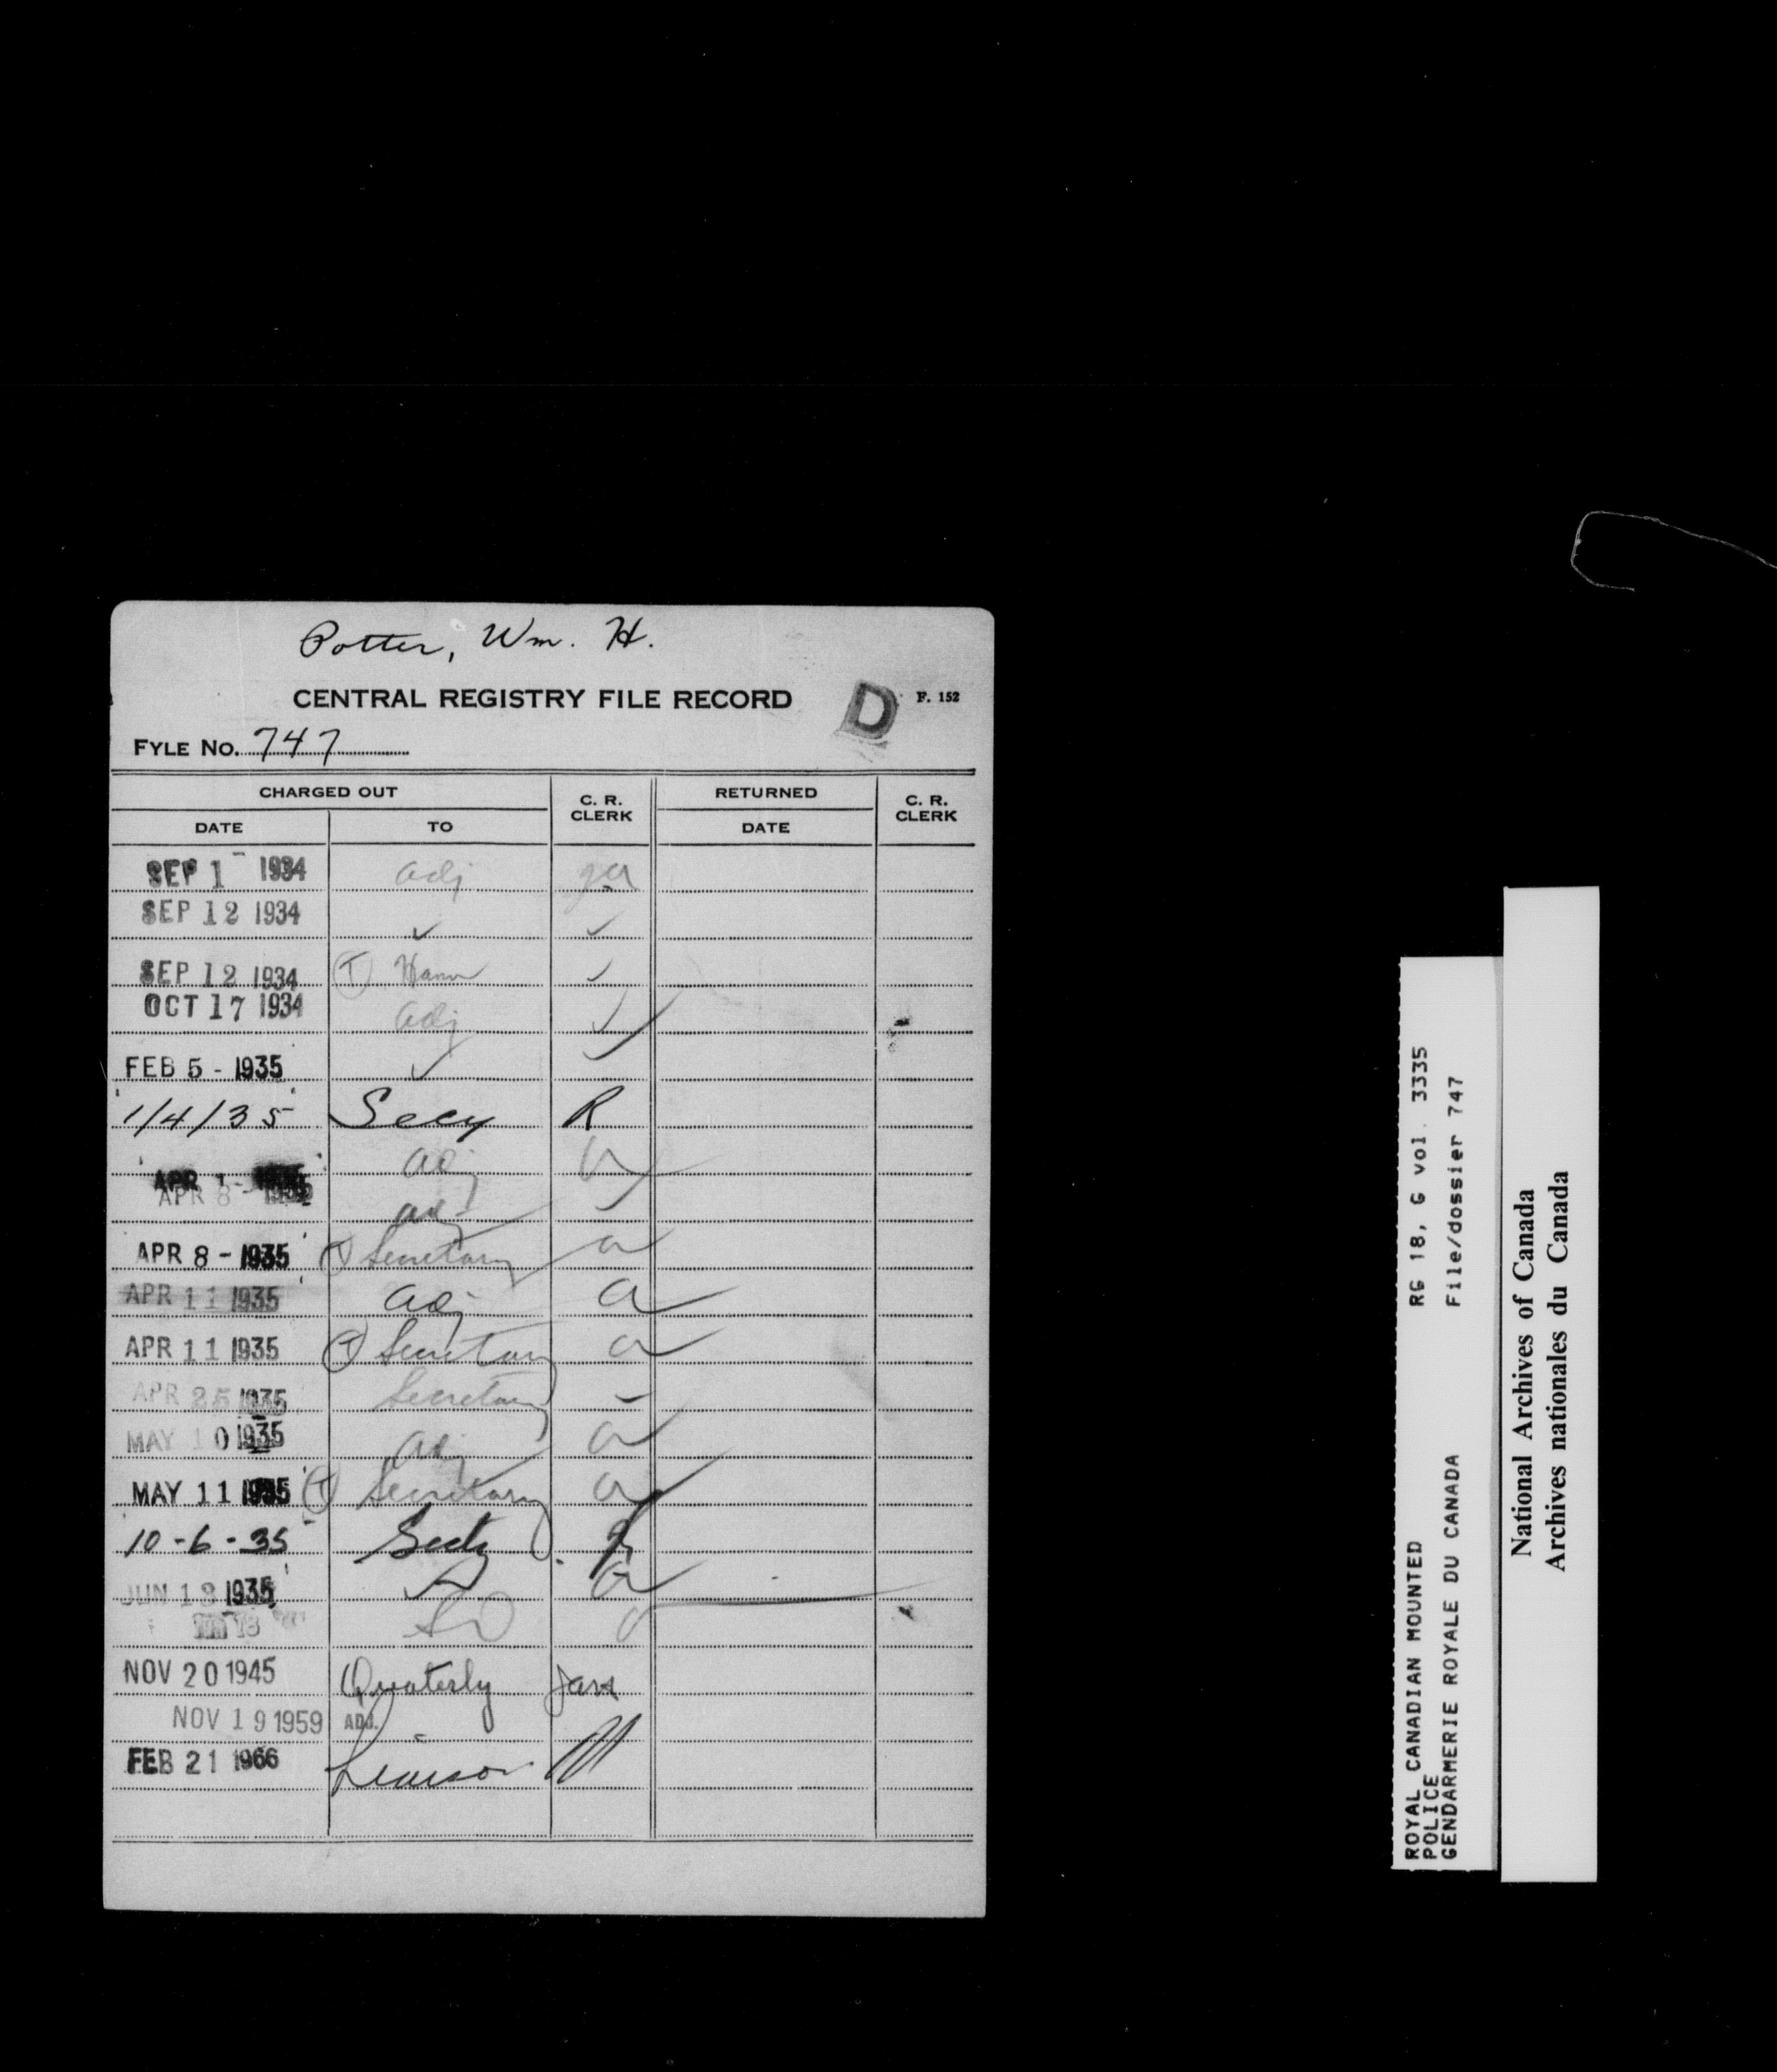 Potter, Wm. H.
CENTRAL REGISTRY FILE RECORD D F. 152
FYLE NO. 747
CHARGED OUT C. R. CLERK RETURNED C. R. CLERK
DATE TO DATE
SEP 1 - 1934 adj
SEP 12 1934 ✓ ✓
SEP 12 1934 T ✓
OCT 17 1934 adj ✓
FEB 5 - 1935 ✓ ✓
1/4/35 Secy R
APR 1 - adj a
APR 8 - 1935 adj
APR 8 - 1935 T Secretary a
APR 11 1935 adj a
APR 11 1935 T Secretary a
APR 25 1935 Secretary
MAY 10 1935 adj a
MAY 11 1935 T Secretary a
10-6-35 Secty
JUN 13 1935 a
NOV 20 1945 Quaterly
NOV 19 1959 ADJ.
FEB 21 1966 Liaison
ROYAL CANADIAN MOUNTED RG 18, G vol. 3335
POLICE
GENDARMERIE ROYALE DU CANADA File/dossier 747
National Archives of Canada
Archives nationales du Canada